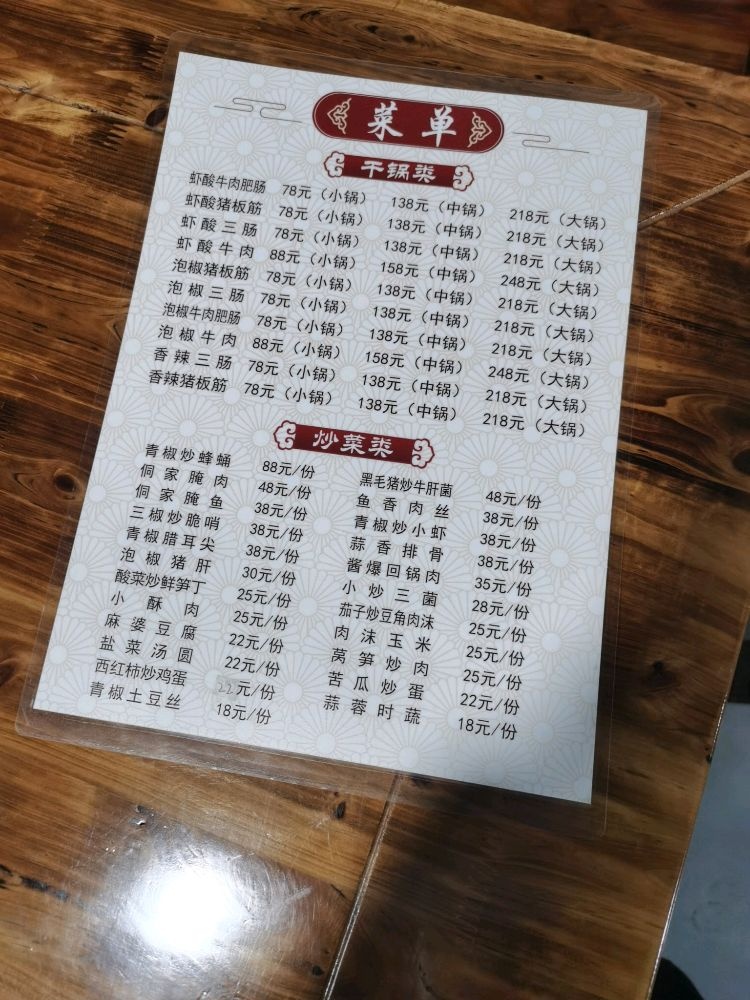 菜单
干锅类
虾酸牛肉肥肠 78元（小锅） 138元（中锅） 218元（大锅）
虾酸猪板筋 78元（小锅） 138元（中锅） 218元（大锅）
虾酸三肠 78元（小锅） 138元（中锅） 218元（大锅）
虾酸牛肉 88元（小锅） 158元（中锅） 248元（大锅）
泡椒猪板筋 78元（小锅） 138元（中锅） 218元（大锅）
泡椒三肠 78元（小锅） 138元（中锅） 218元（大锅）
泡椒牛肉肥肠 78元（小锅） 138元（中锅） 218元（大锅）
泡椒牛肉 88元（小锅） 158元（中锅） 248元（大锅）
香辣三肠 78元（小锅） 138元（中锅） 218元（大锅）
香辣猪板筋 78元（小锅） 138元（中锅） 218元（大锅）
炒菜类
青椒炒蜂蛹 88元/份
侗家腌肉 48元/份
侗家腌鱼 38元/份
三椒炒脆哨 38元/份
青椒腊耳尖 38元/份
泡椒猪肝 30元/份
酸菜炒鲜笋丁 25元/份
小酥肉 25元/份
麻婆豆腐 22元/份
盐菜汤圆 22元/份
西红柿炒鸡蛋 22元/份
青椒土豆丝 18元/份
黑毛猪炒牛肝菌 48元/份
鱼香肉丝 38元/份
青椒炒小虾 38元/份
蒜香排骨 38元/份
酱爆回锅肉 35元/份
小炒三菌 28元/份
茄子炒豆角肉沫 25元/份
肉沫玉米 25元/份
莴笋炒肉 25元/份
苦瓜炒蛋 22元/份
蒜蓉时蔬 18元/份